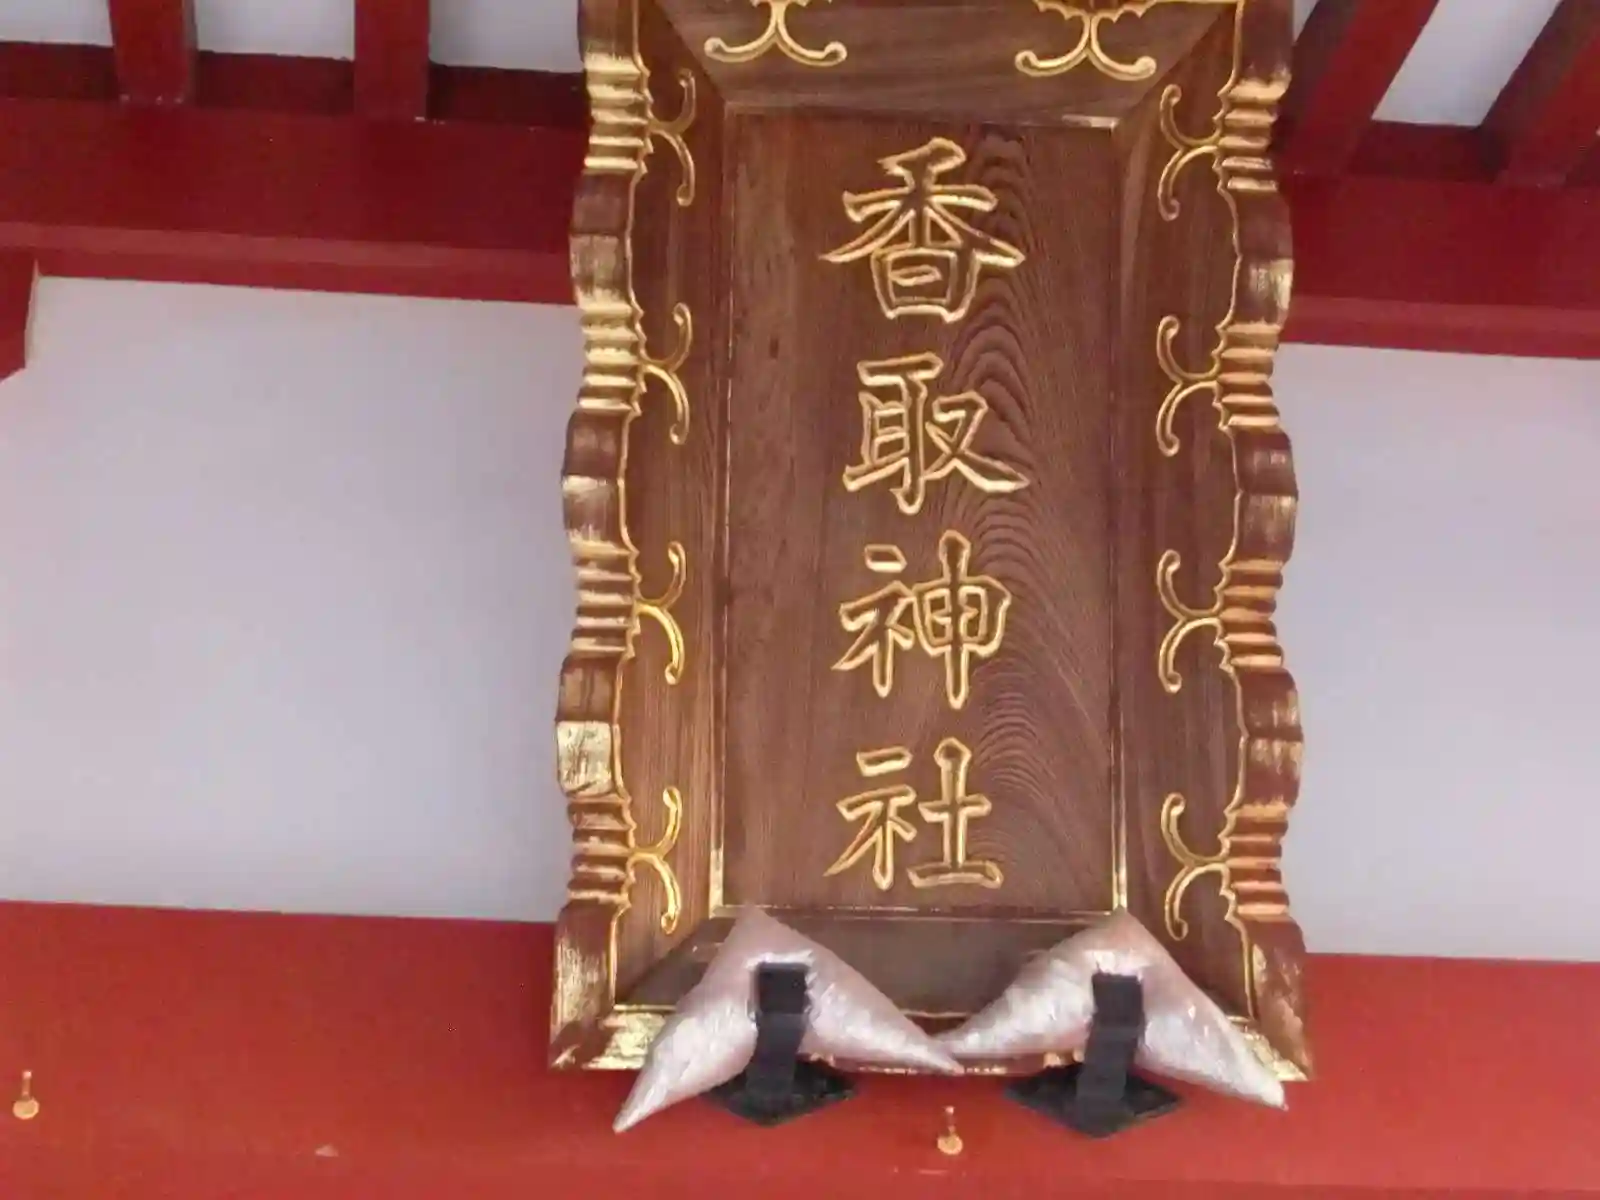 香取神社